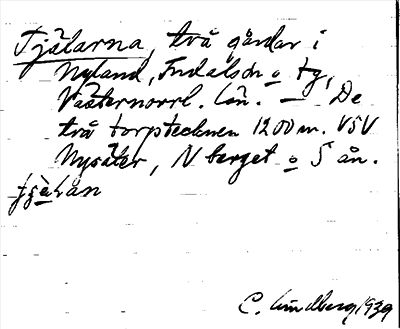 Tjälarna, två gårdar i
Nyland, Indalsån o tg,
Västernorrl. län. — De
två torptecknen 1200 m. VSV
Nysäter, N berget o S ån.
C. Lindberg 1939